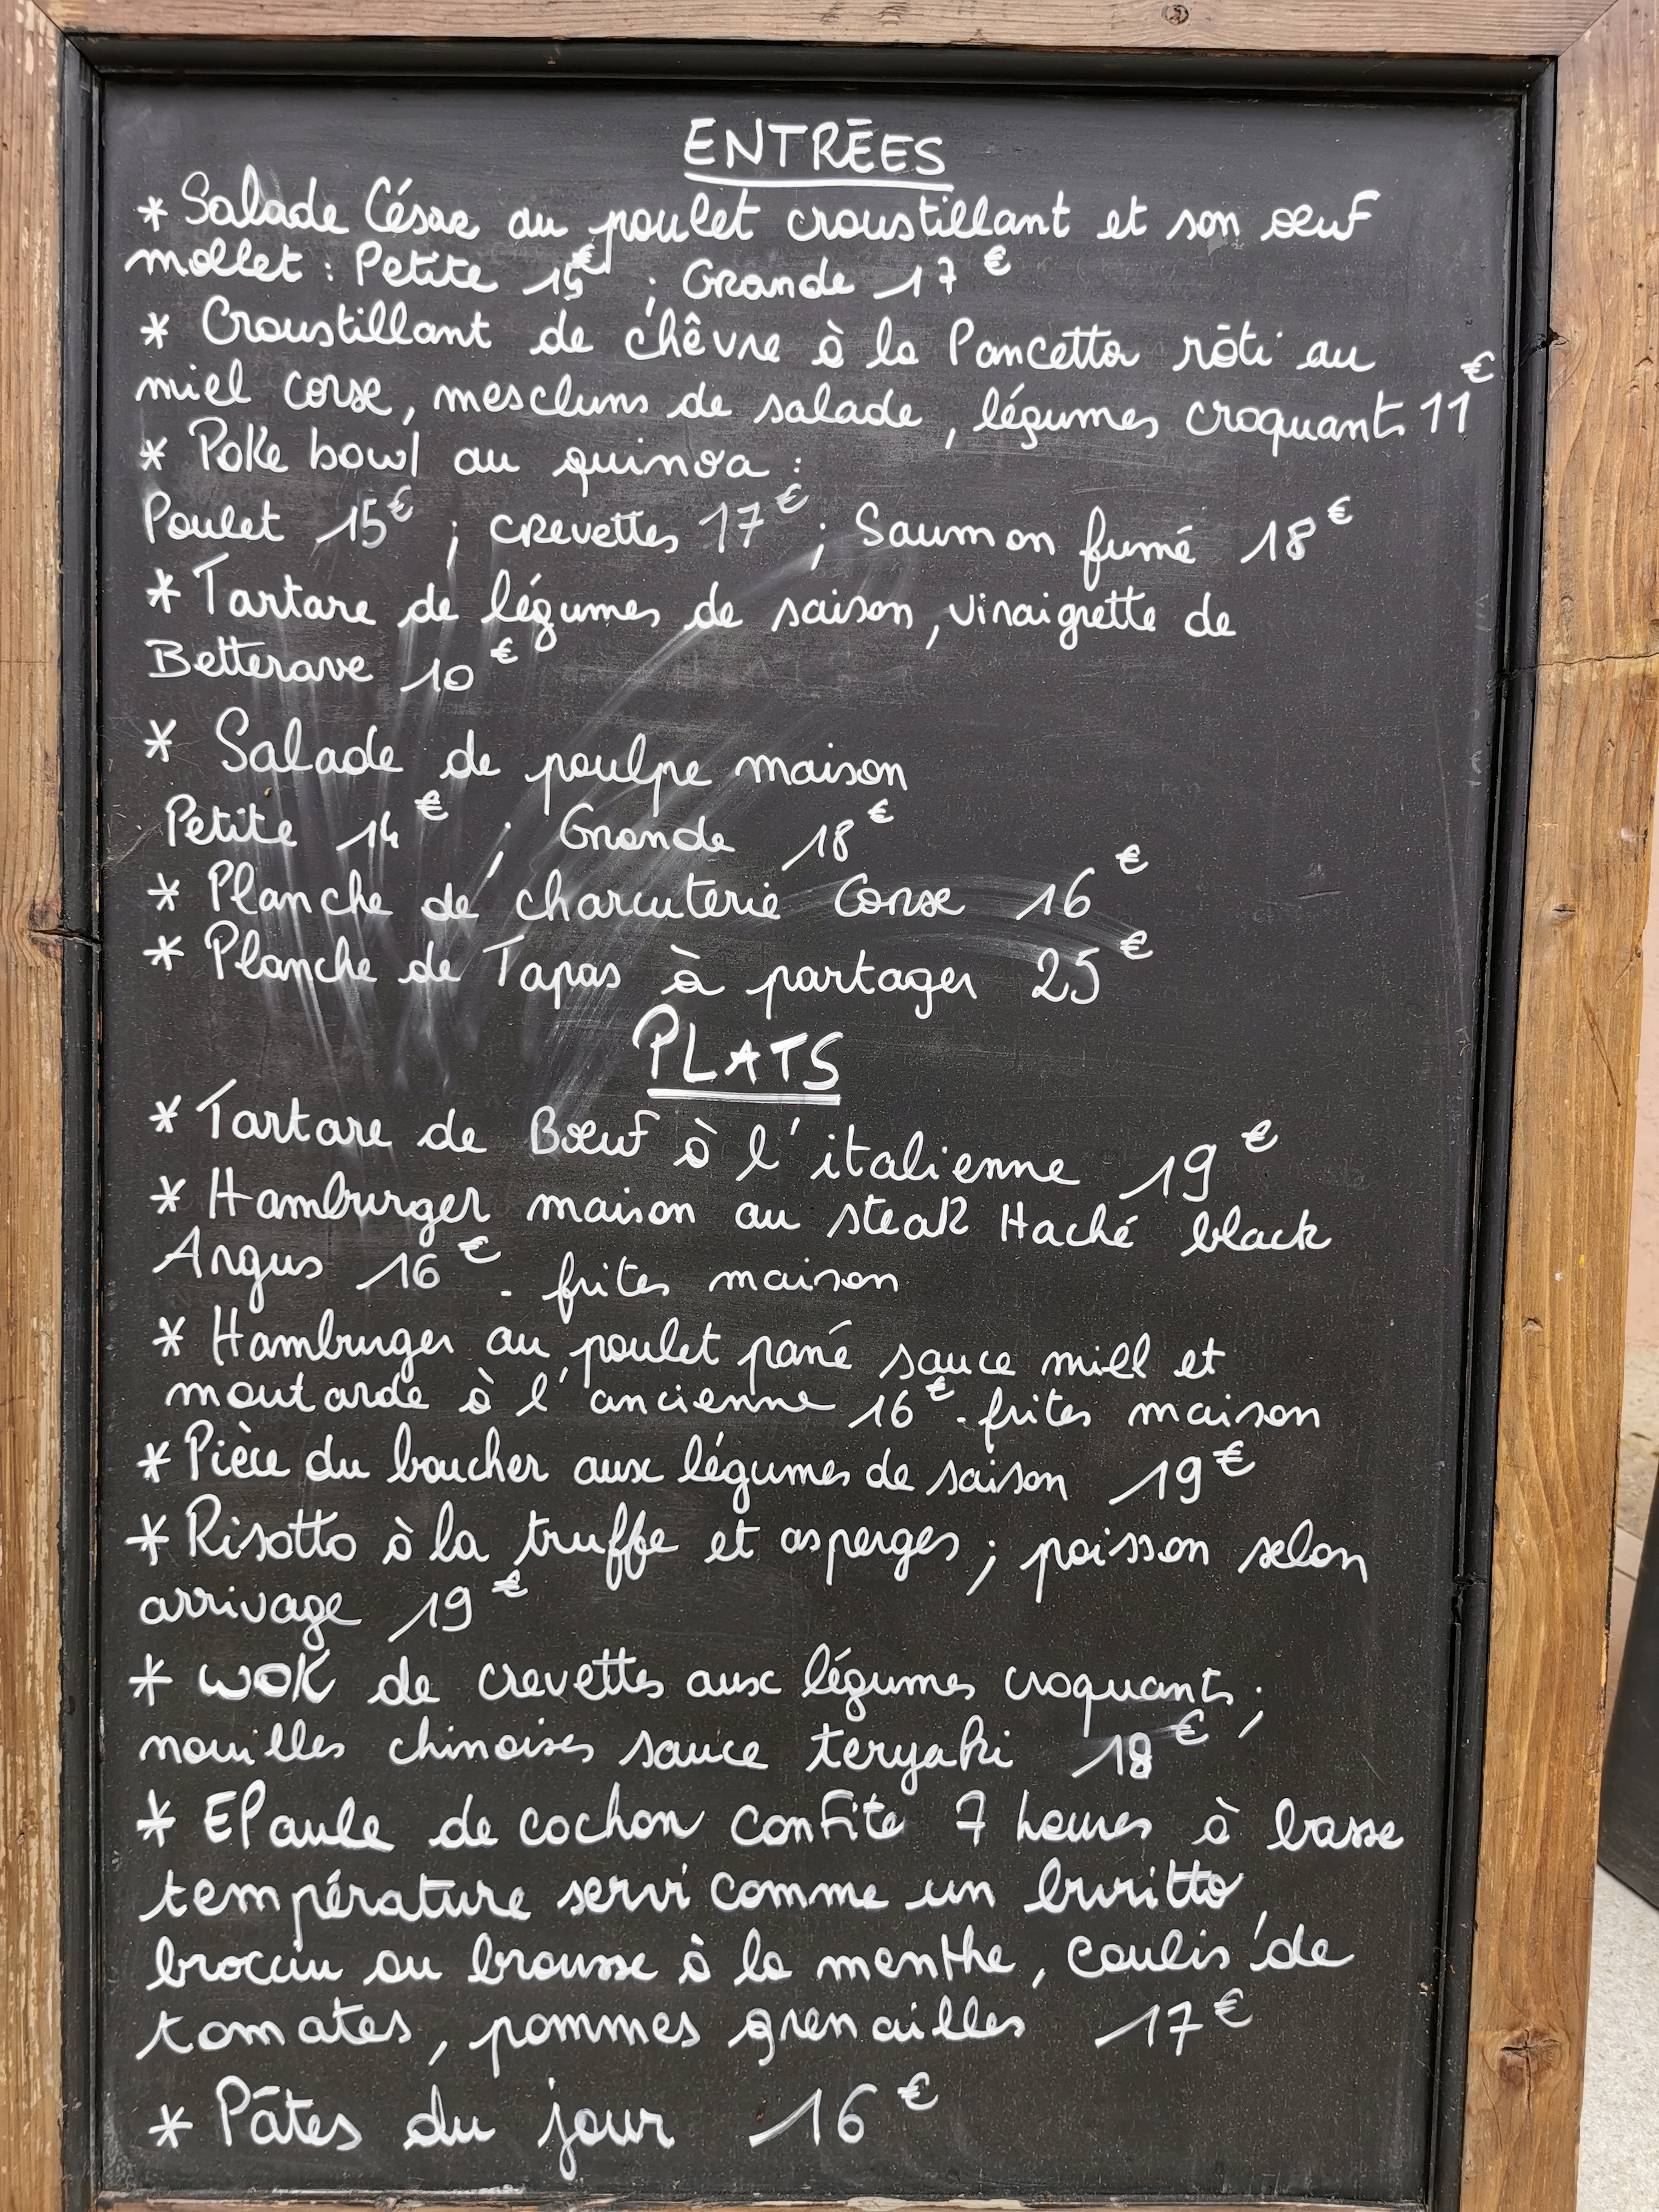 ENTRÉES
* Salade César au poulet croustillant et son œuf
mollet : Petite 15€ ; Grande 17€
* Croustillant de chêvre à la Pancetta rôti au
miel corse, mescluns de salade, légumes croquants 11€
* Poke bowl au quinoa :
Poulet 15€ ; crevettes 17€ ; Saumon fumé 18€
* Tartare de légumes de saison, vinaigrette de
Betterave 10€
* Salade de poulpe maison
Petite 14€ ; Grande 18€
* Planche de charcuterie Corse 16€
* Planche de Tapas à partager 25€
PLATS
* Tartare de Bœuf à l'italienne 19€
* Hamburger maison au steak Haché black
Angus 16€ - frites maison
* Hamburger au poulet pané sauce miel et
moutarde à l'ancienne 16€ - frites maison
* Pièce du boucher aux légumes de saison 19€
* Risotto à la truffe et asperges ; poisson selon
arrivage 19€
* wok de crevettes aux légumes croquants ;
nouilles chinoises sauce teryaki 18€
* EPaule de cochon confite 7 heures à basse
température servi comme un burritto,
brocciu ou brousse à la menthe, coulis de
tomates, pommes grenailles 17€
* Pâtes du jour 16€